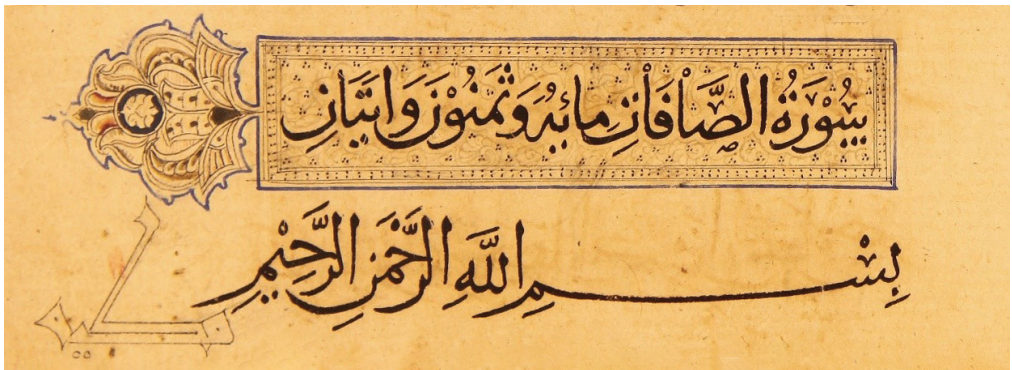 سُوْرَةُ الصَّافَّاتِ مِائَةُ وَثَمَنُوْنَ وَاثْنَتَانِ
بِسْمِ اللَّهِ الرَّحْمَنِ الرَّحِيْمِ